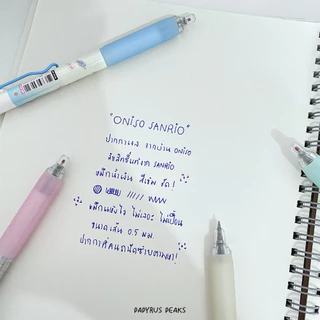 "ONISO SANRIO"
ปากกาเจล จากบ้าน ONISO
ลิขสิทธิ์แท้จาก SANRIO
หมึกน้ำเงิน สีเข้ม ชัด!
หมึกแห้งไว ไม่เลอะ ไม่เปื้อน
ขนาดเส้น 0.5 มม.
ปากกาคนถนัดซ้าย
DADYRUS DEAKS